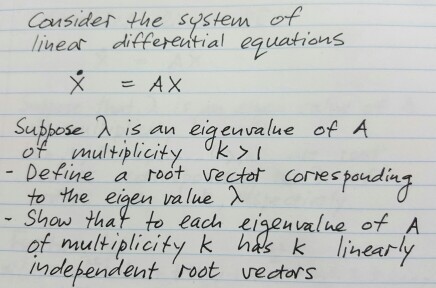 Consider the system of
linear differential equations
Ẋ = AX
Suppose λ is an eigenvalue of A
of multiplicity k > 1
- Define a root vector corresponding
to the eigen value λ
- Show that to each eigenvalue of A
of multiplicity k has k linearly
independent root vectors